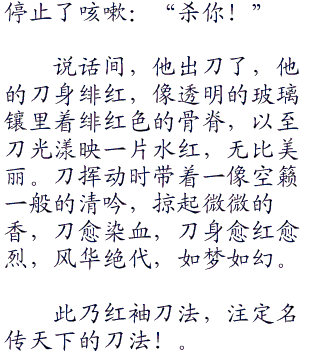 停止了咳嗽：“杀你！”
说话间，他出刀了，他
的刀身绯红，像透明的玻璃
镶里着绯红色的骨脊，以至
刀光漾映一片水红，无比美
丽。刀挥动时带着一像空籁
一般的清吟，掠起微微的
香，刀愈染血，刀身愈红愈
烈，风华绝代，如梦如幻。
此乃红袖刀法，注定名
传天下的刀法！。